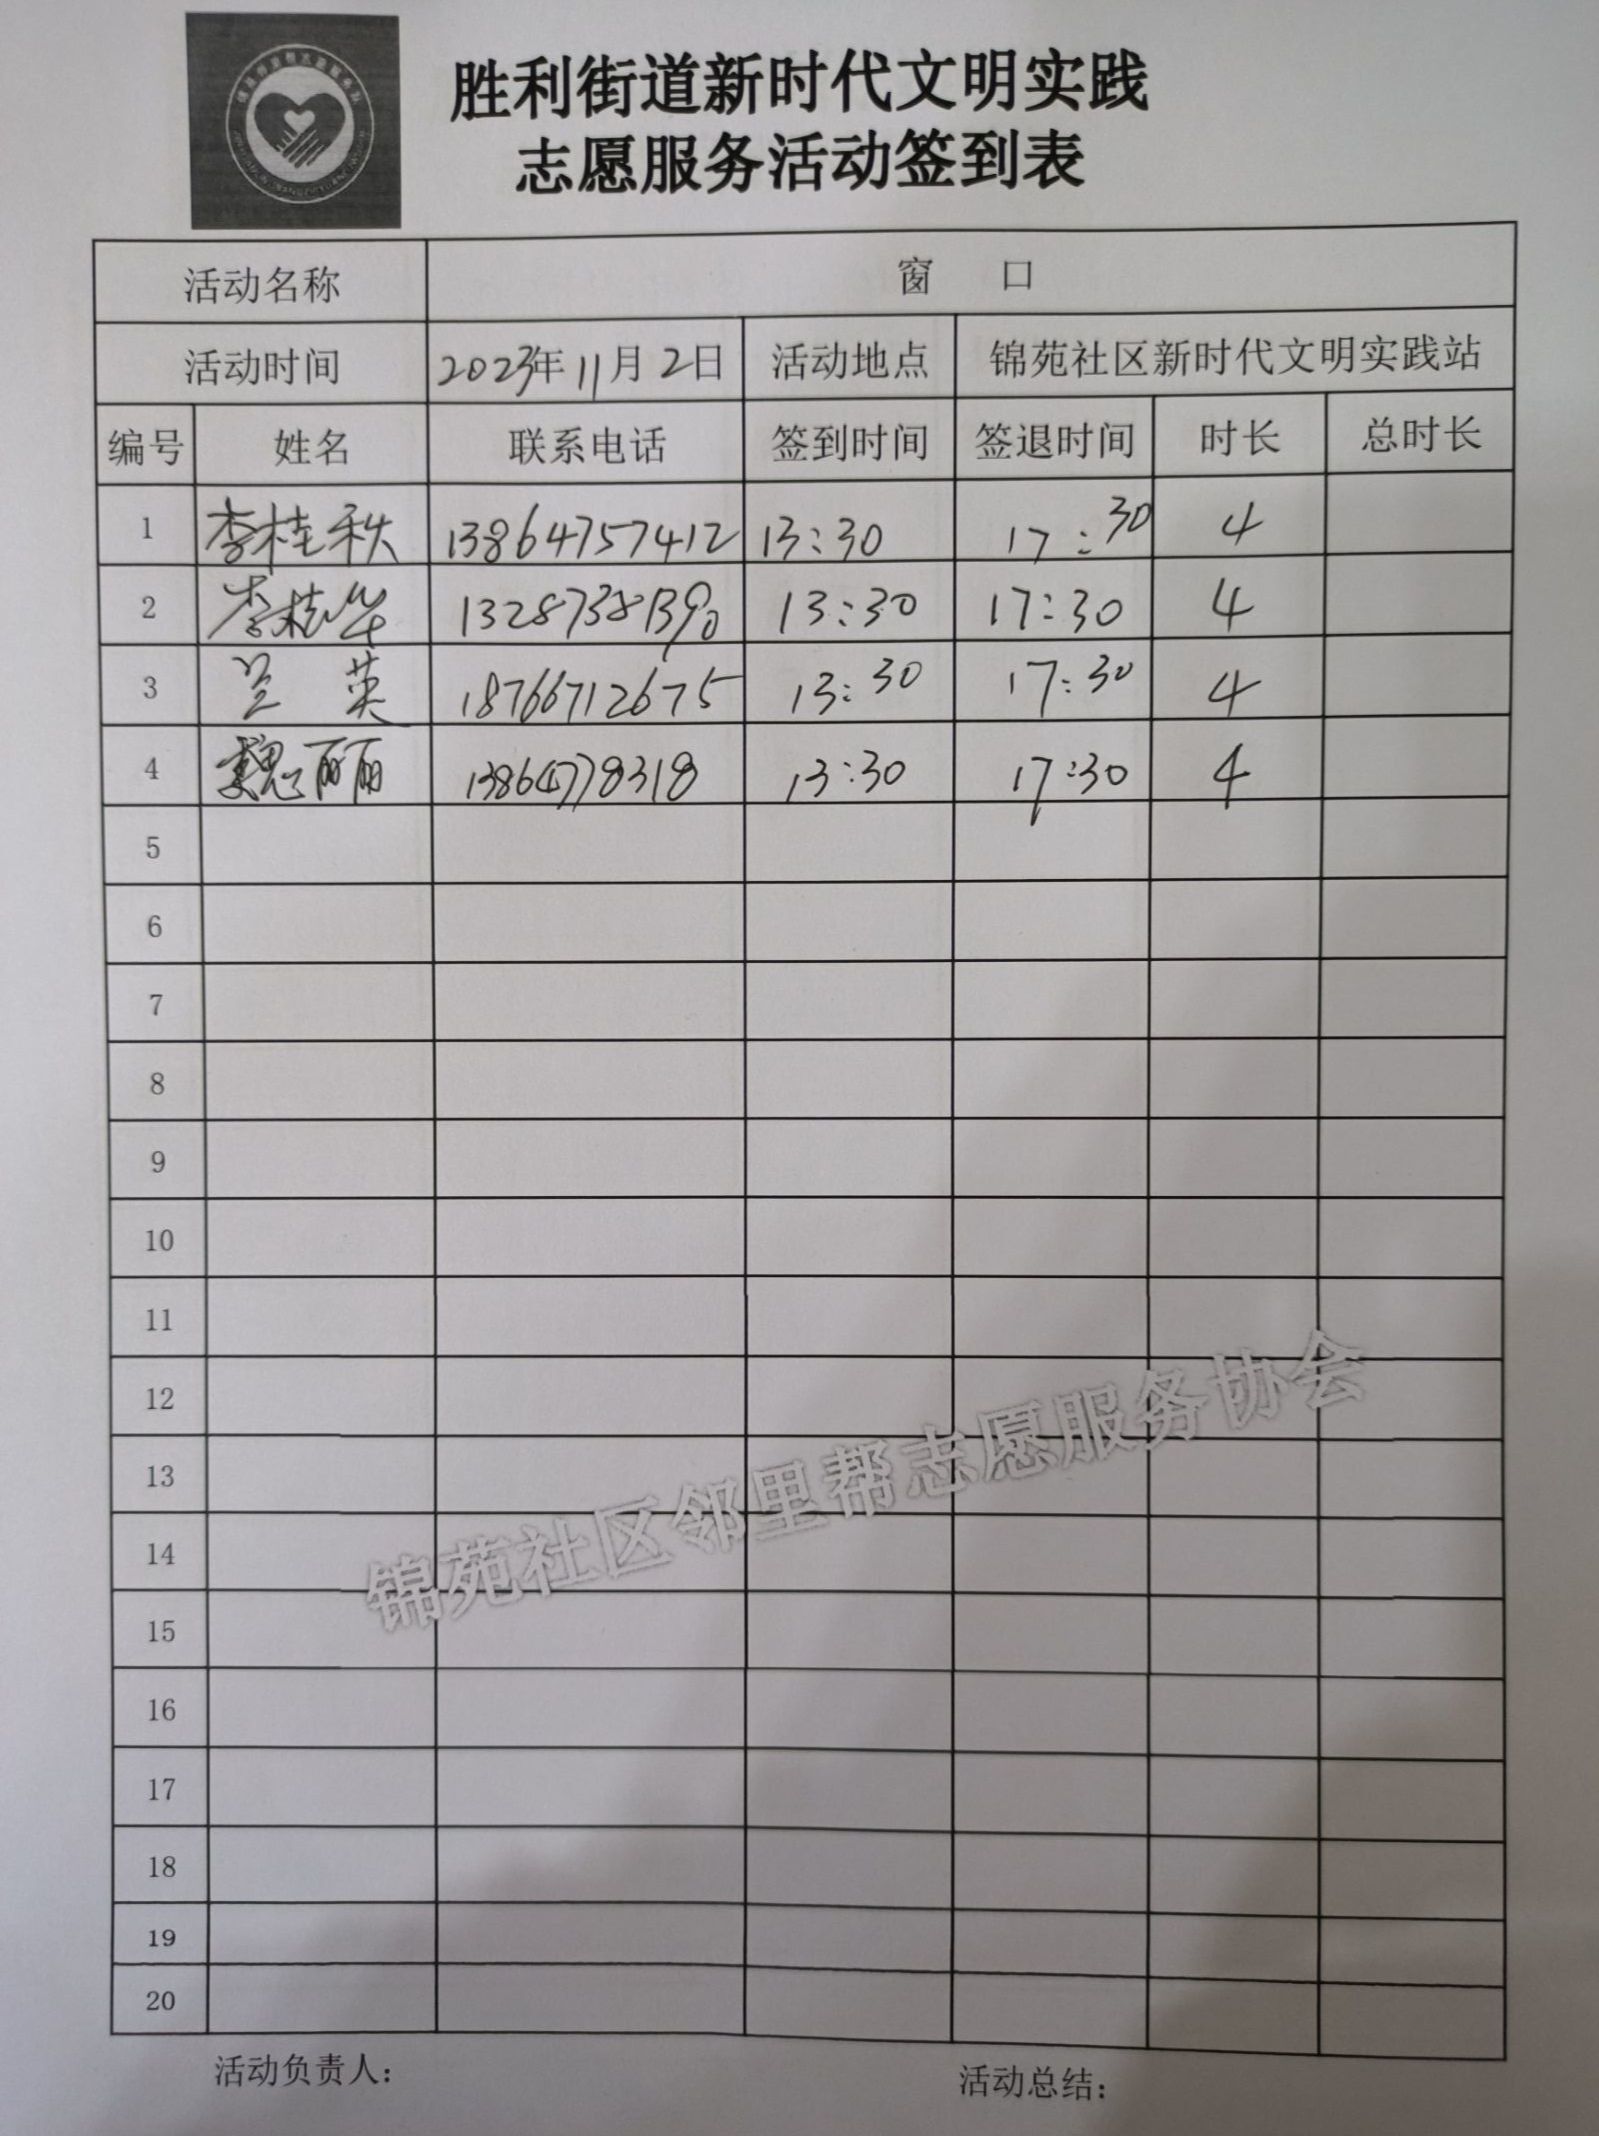 胜利街道新时代文明实践
志愿服务活动签到表
活动名称 窗 口
活动时间 2023年11月2日 活动地点 锦苑社区新时代文明实践站
编号 姓名 联系电话 签到时间 签退时间 时长 总时长
1 李桂秋 13864757412 13:30 17:30 4
2 李桂华 13287381390 13:30 17:30 4
3 兰 英 18766712675 13:30 17:30 4
4 魏丽丽 13864778318 13:30 17:30 4
5
6
7
8
9
10
11
12
13
14
15
16
17
18
19
20
锦苑社区邻里帮志愿服务协会
活动负责人: 活动总结: